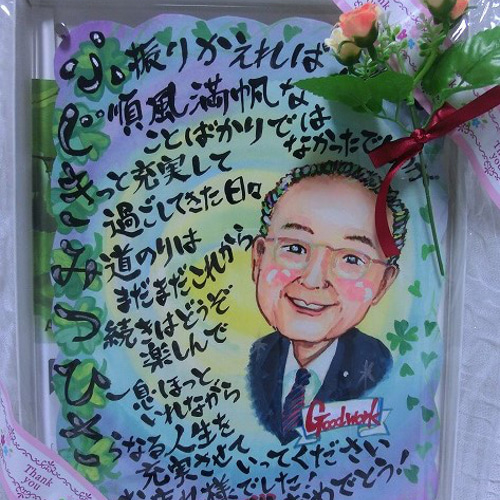 ふ 振りかえれば
じ 順風満帆な
ことばかりでは
なかったでしょうが
きっと充実して
過ごしてきた日々
み 道のりは
まだまだこれから
つ 続きはどうぞ
楽しんで
ひ 一息ほっと
いれながら
さらなる人生を
充実させていってください
お疲れ様でした!おめでとう!
Good work!
Thank you
Thank you